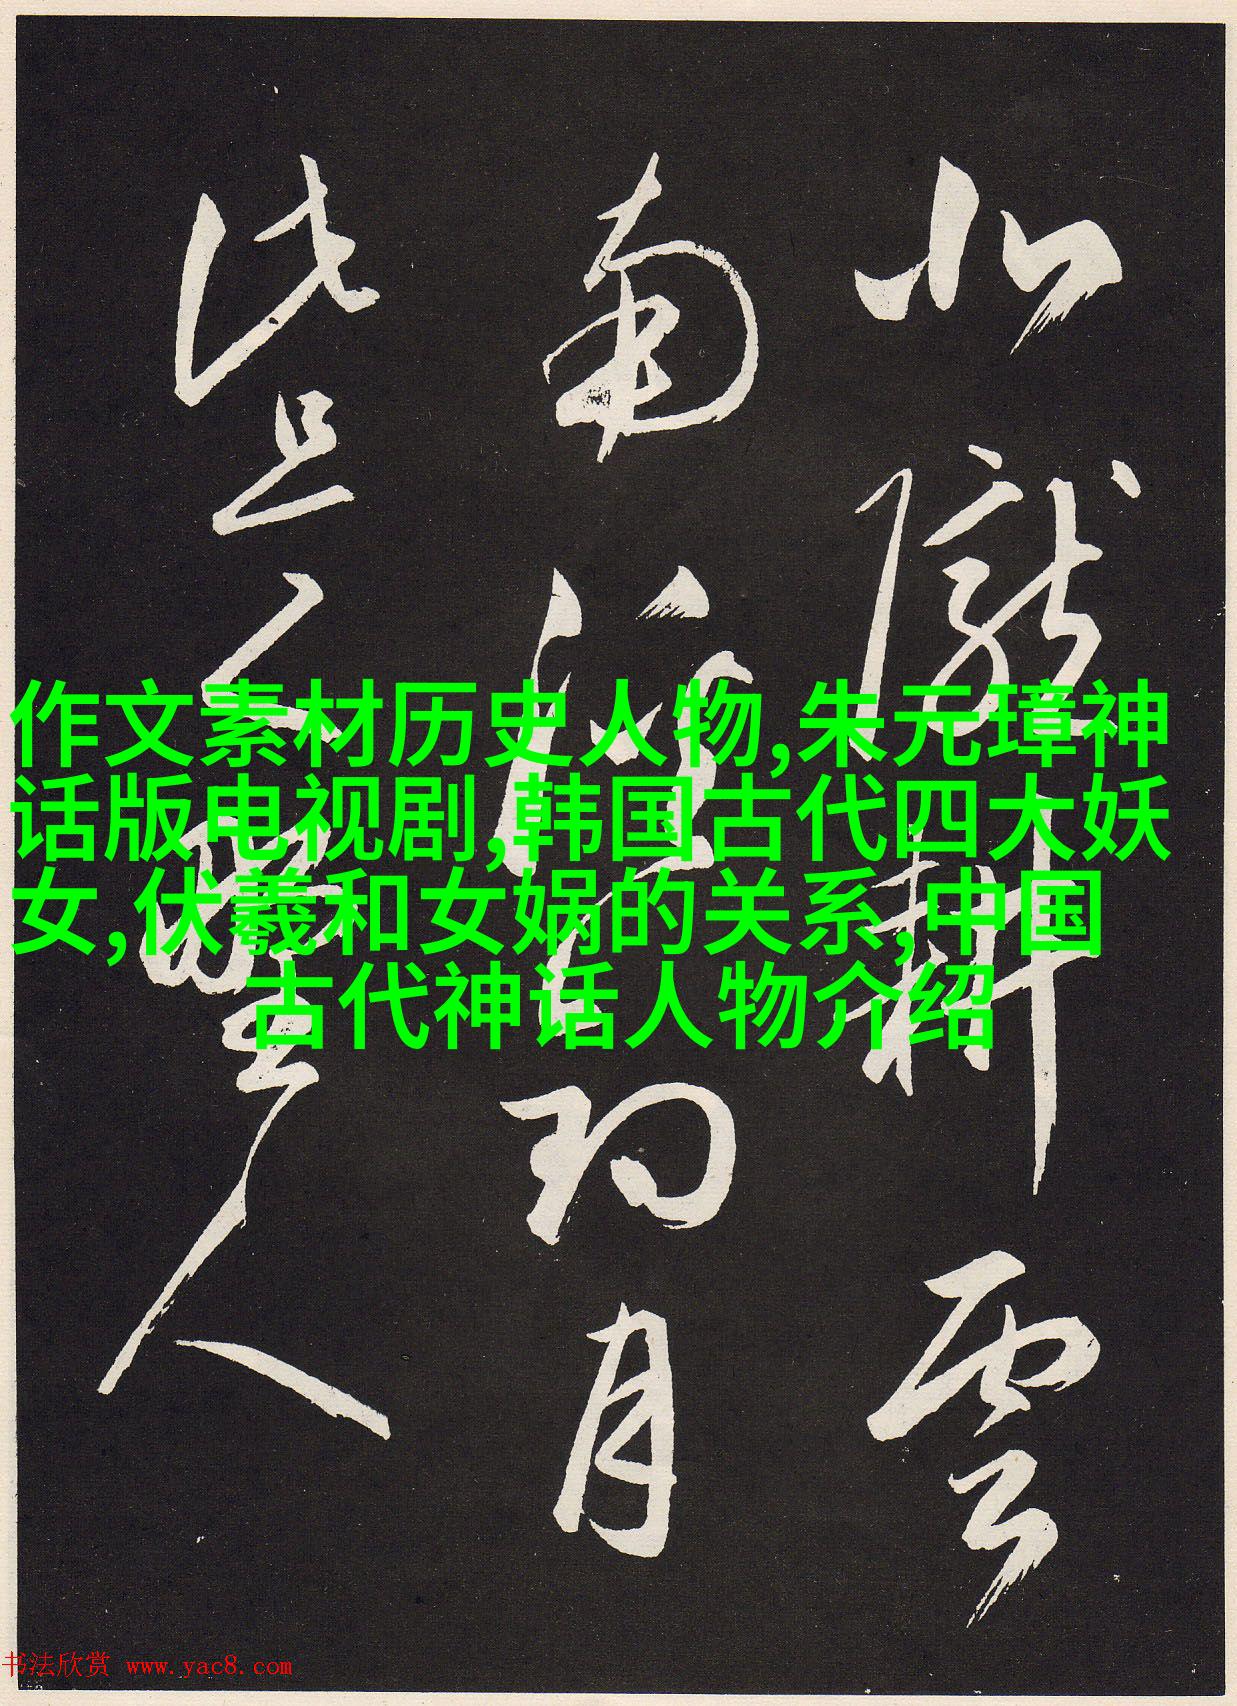 北隴耕雲
南溪釣月
此是野人
作文素材历史人物,朱元璋神
话版电视剧,韩国古代四大妖
女,伏羲和女娲的关系,中国
古代神话人物介绍
书法欣赏 www.yac8.com